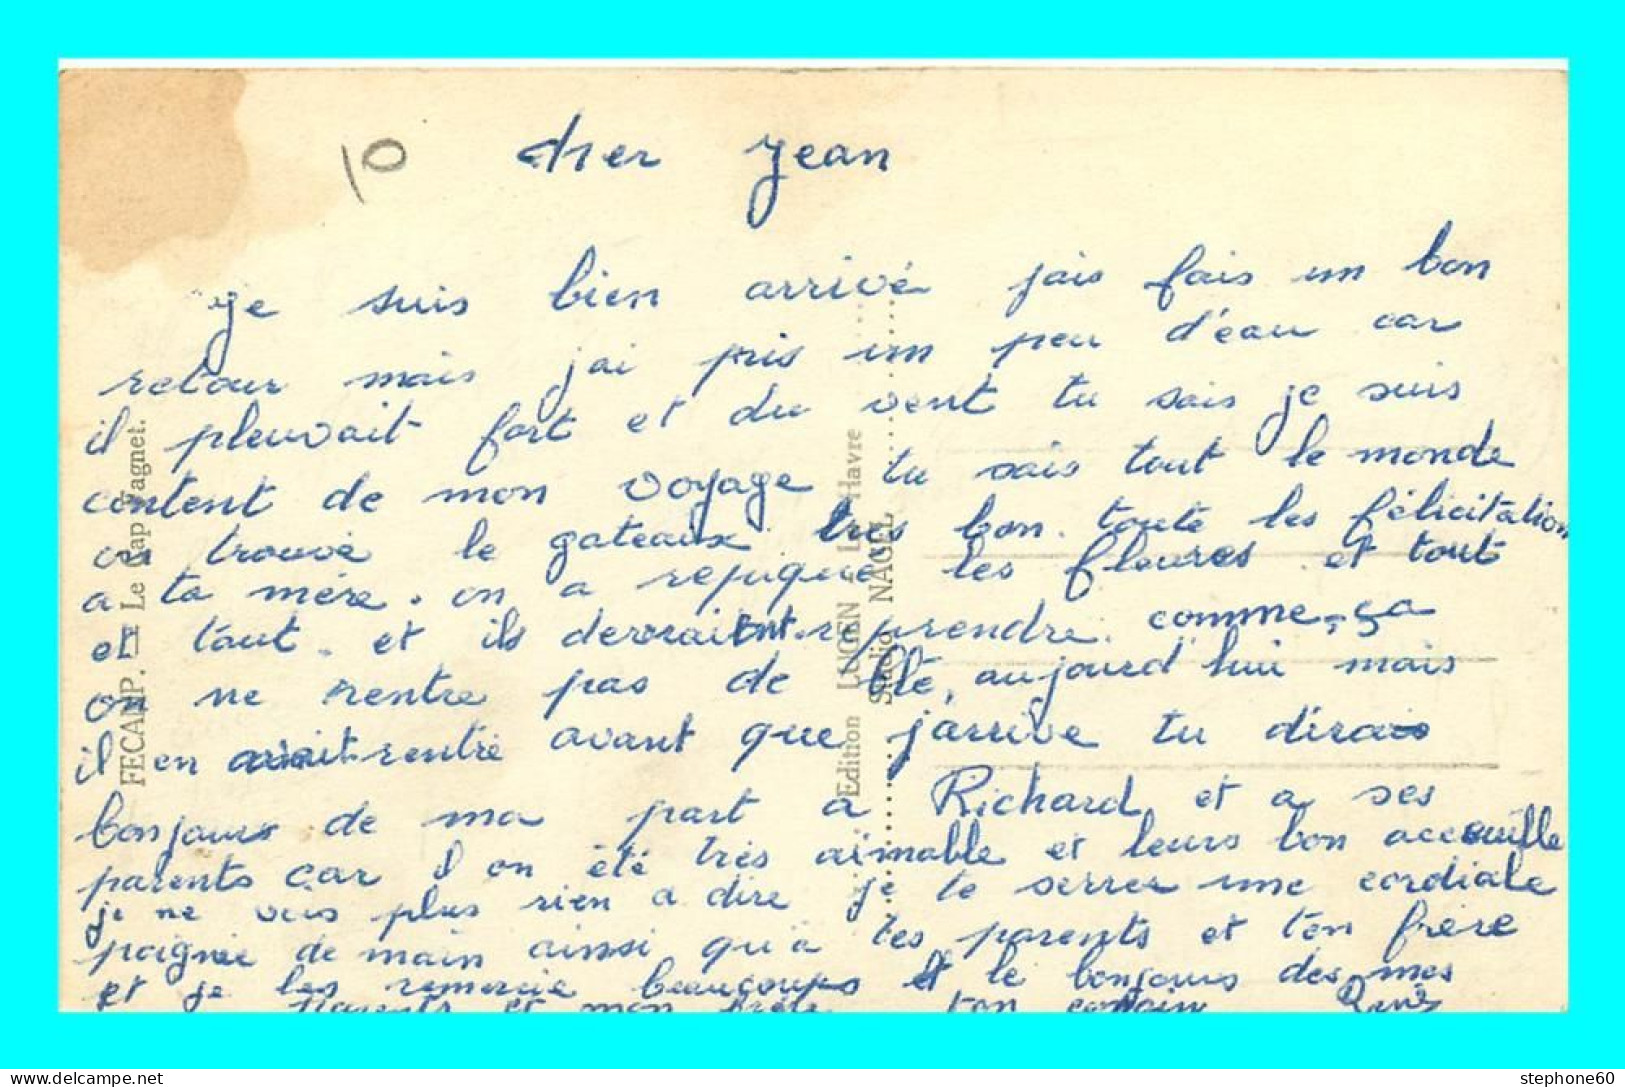 10
cher Jean
je suis bien arrivé jais fais un bon
retour mais jai pris un peu d'eau car
il pleuvait fort et du vent tu sais je suis
content de mon voyage tu sais tout le monde
on trouvé le gateaux très bon. toute les félicitation
a ta mère. on a les fleures et tout
et tout. et ils prendre. comme ça
on ne rentre pas de blé, aujourd'hui mais
il en rentré avant que j'arrive tu dirais
bonjours de ma part a Richard et a ses
parents car il on été très aimable et leurs bon accouille
je ne vois plus rien a dire je te serrer une cordiale
poignée de main ainsi qu'a tes parents et ton frère
et je les remercie beaucoups et le bonjours des mes
parents et mon frère ton copain René
FECAMP. — Le Cap Fagnet.
Edition LUCIEN Le Havre
Studio NAGEL
stephone60